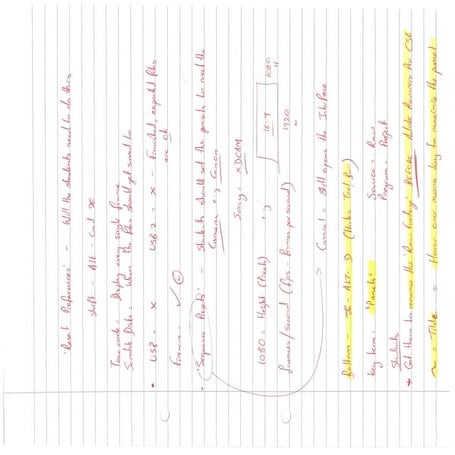 'Reset Preferences' - Will the students need to do this
Shift - Alt - Cmd
Timecode = Display every single frame
Scratch Disks = Where the files should get saved to
• USB = x USB 2 = x - Finished, exported files are ok
Firewire = ✓
• 'Sequence Presets' - Students should set the presets to meet the
Camera :-) Canon
Sony: XDCAM
1080 = Height (Pixels) :-) 16:9 1080
1920
frames/second (fps - frames per second)
Cancel = Still opens the Interface
Bottom - ALT - D
Key term: 'Panels' Source = Raw
Program = Project
Students
* Get them to rename the 'Raw footage' BEFORE Adobe Premiere Pro CS6
~ = Title = Hover over mouse key to maximise the panel